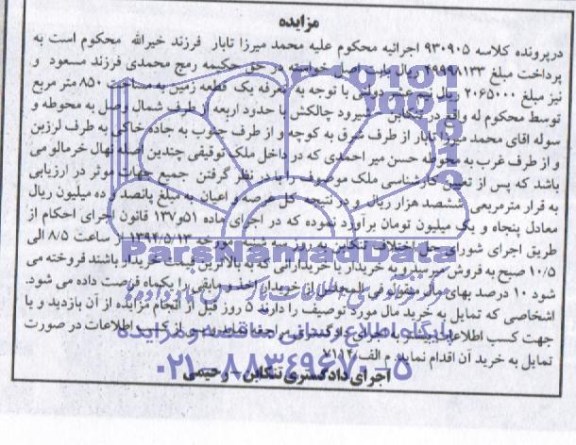 مزایده
درپرونده کلاسه ۹۳۰۹۰۵ اجرائیه محکوم علیه محمد میرزا تاتار فرزند خیرالله محکوم است به
پرداخت مبلغ ۴۹۹۹۸۱۳۳ ریال بابت اصل خواسته در حق حکیمه رمج محمدی فرزند مسعود و
نیز مبلغ ۲۰۶۵۰۰۰ ریال دولتی با توجه به معرفه یک قطعه زمین به مساحت ۸۵۰ متر مربع
توسط محکوم له واقع در تنکابن شیرود چالکش با حدود اربعه از طرف شمال وصل به محوطه و
سوله اقای محمد میرزا تاتار از طرف شرق به کوچه و از طرف جنوب به جاده خاکی به طرف لرزین
و از طرف غرب به محوطه حسن میر احمدی که در داخل ملک توقیفی چندین اصله نهال خرمالو می
باشد که پس از تعیین کارشناسی ملک موصوف را با در نظر گرفتن جمیع جهات موثر در ارزیابی
به قرار مترمربعی ششصد هزار ریال و در نتیجه کل عرصه و اعیان به مبلغ پانصد و ده میلیون ریال
معادل پنجاه و یک میلیون تومان برآورد نموده که در اجرای ماده ۵۱ و ۱۳۷ قانون اجرای احکام از
طریق اجرای شورای حل اختلاف تنکابن به روز سه شنبه مورخه ۱۳۹۴/۵/۱۳ از ساعت ۸/۵ الی
۱۰/۵ صبح به فروش میرساند به خریدار یا خریدارانی که به بالاترین قیمت خریدار باشند فروخته می
شود ۱۰ درصد بهای مال مزبور فی المجلس از خریدار اخذ و مابقی را یکماه فرصت داده می شود.
اشخاصی که تمایل به خرید مال مورد توصیف را دارند ۵ روز قبل از انجام مزایده از آن بازدید و یا
جهت کسب اطلاعات بیشتر به اجرای دادگستری مراجعه نمایند و از کسب اطلاعات در صورت
تمایل به خرید آن اقدام نمایند م الف/۷۱۱۳
اجرای دادگستری تنکابن - رحیمی
ParsNamadData
پایگاه اطلاع رسانی مناقصه و مزایده
۰۲۱-۸۸۳۴۹۶۷۰-۵